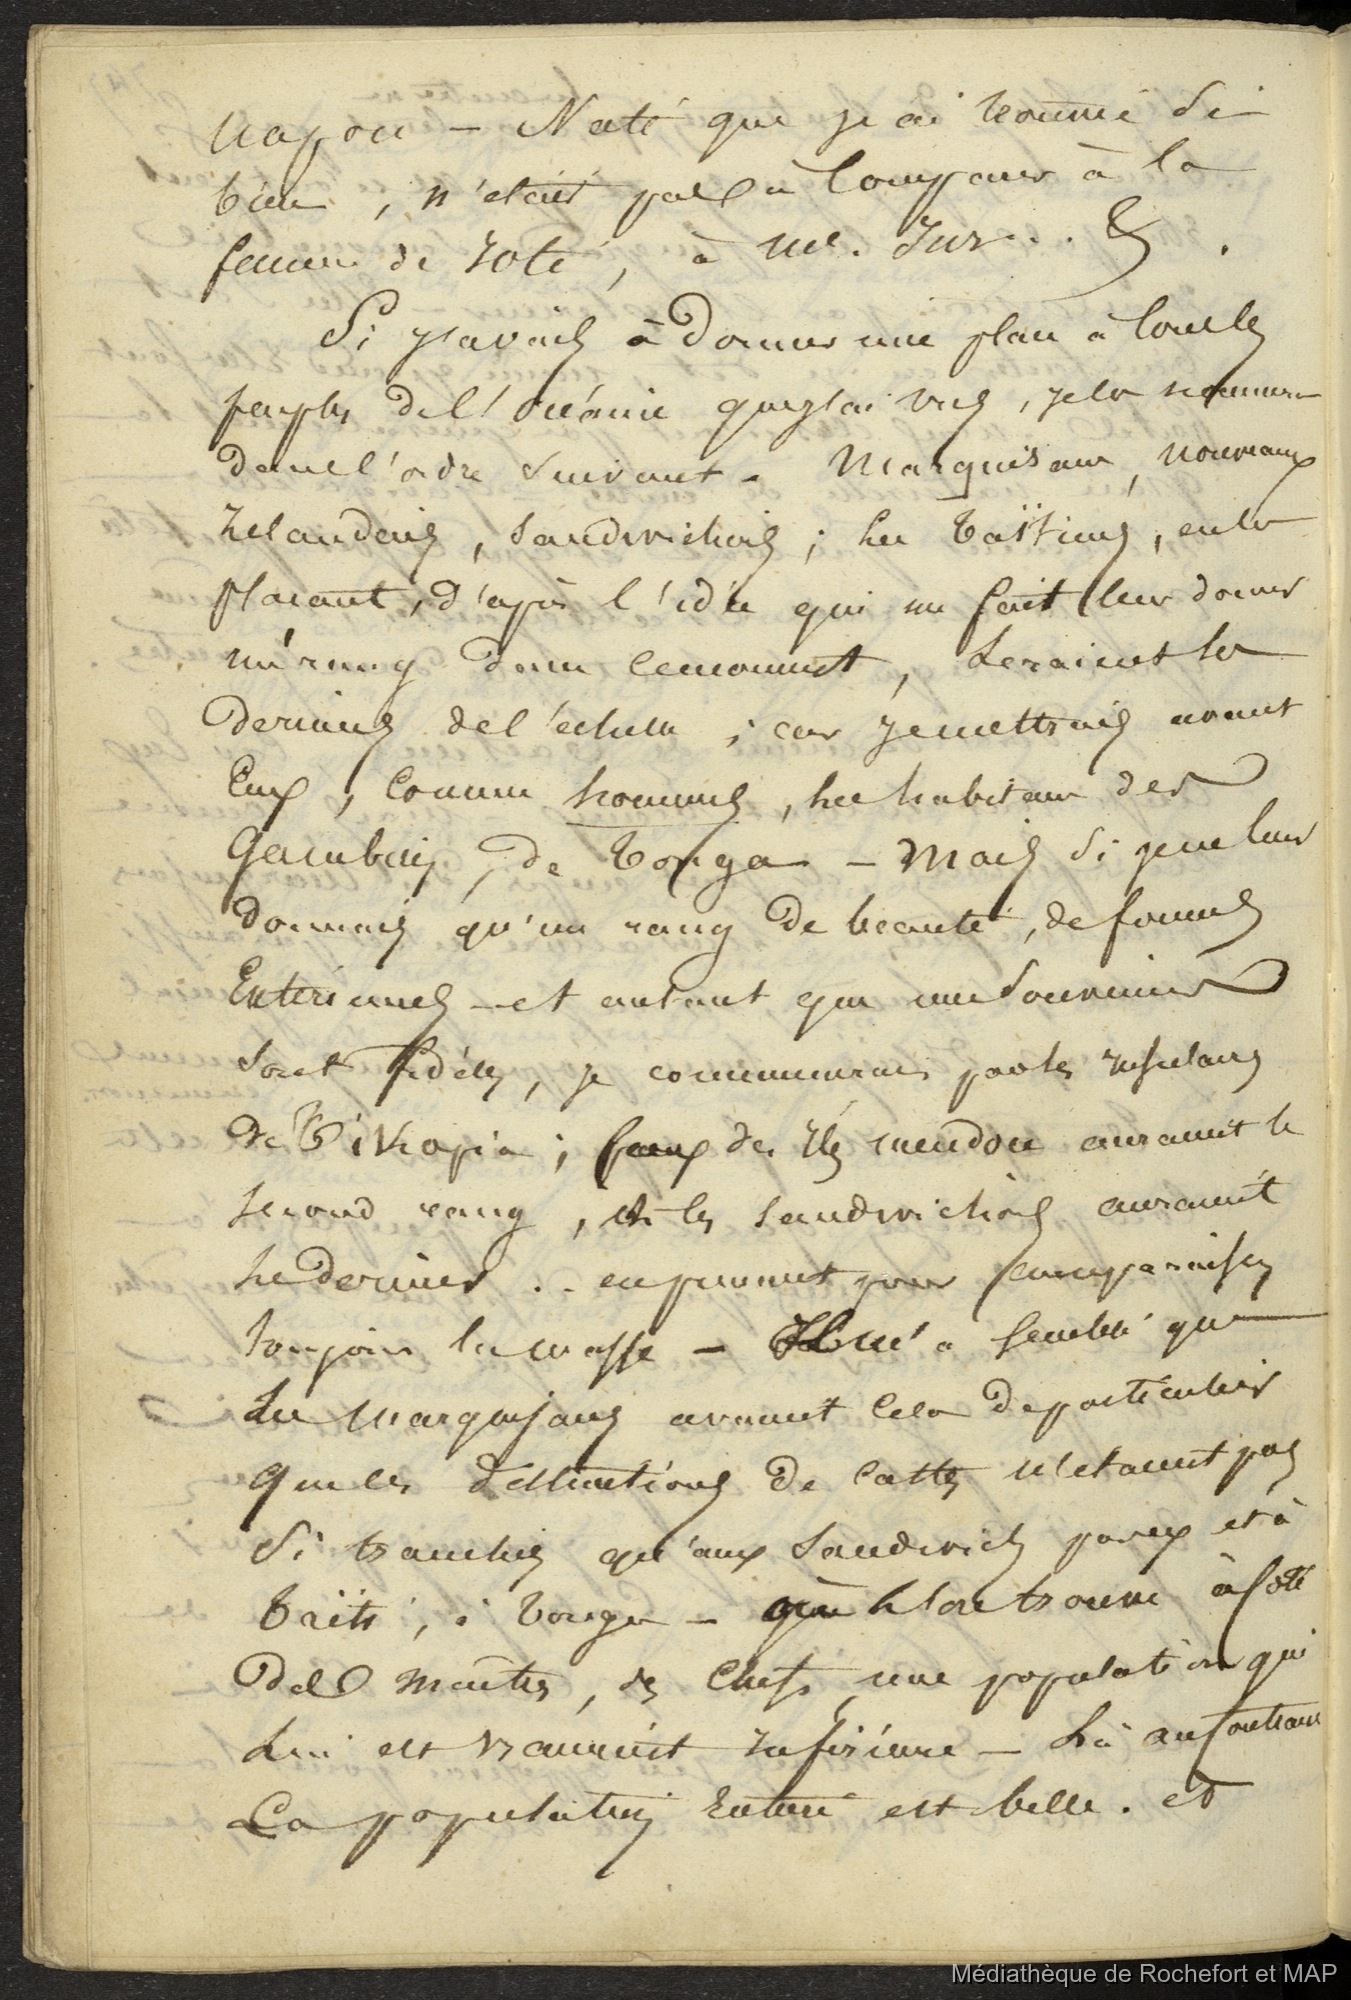 napou — Naté que j'ai trouvé si
bien, n'était pas à comparer à la
femme de Toté, à
Si j'avais à donner une place à tous les
peuples de l'océanie que j'ai vus, je les nommerai
dans l'ordre suivant. Marquisans, nouveaux
Zelandais, Sandwichois ; les Taïtiens, en les
plaçant, d'après l'idée qui me fait leur donner
un rang dans ce moment, seraient les
derniers de l'échelle ; car je mettrais avant
Eux, Comme hommes, les habitans des
Gambier, de Tonga — Mais si je ne leur
donnais qu'un rang de beauté, de formes
Extérieures — et autant que mes souvenirs
sont fidèles, je commencerais par les insulaires
de Tikopia ; ceux des Iles mendoce auraient le
second rang, et les Sandwichois auraient
le dernier .. en prenant pour comparaison
toujours la masse — Il m'a semblé que
Les marquisans avaient cela de particulier
que les distinctions de castes n'étaient pas
si tranchées qu'aux Sandwich par ex et à
Taïti, à Tonga — que l'on trouve à côté
des maîtres, des Chefs, une population qui
Lui est vraiment inférieure — Là au contraire
La population entière est belle. et
Médiathèque de Rochefort et MAP